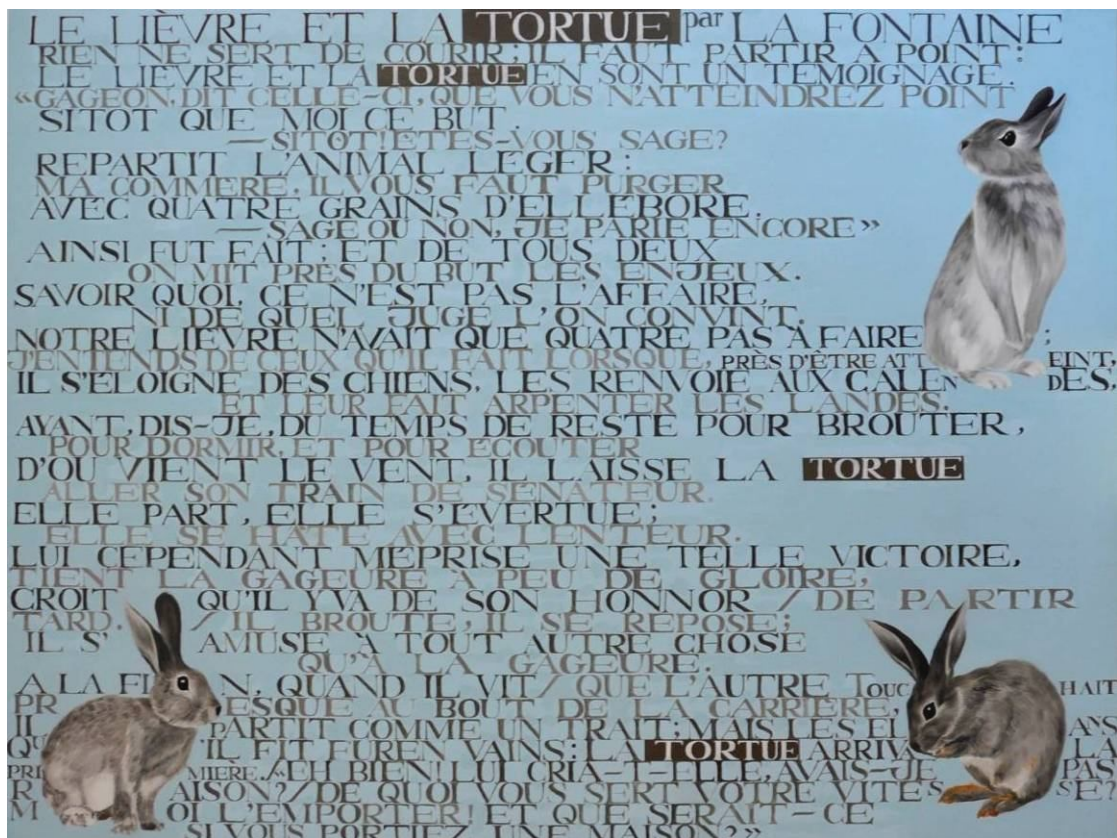 LE LIÈVRE ET LA TORTUE par LA FONTAINE
RIEN NE SERT DE COURIR; IL FAUT PARTIR A POINT:
LE LIÈVRE ET LA TORTUE EN SONT UN TEMOIGNAGE.
«GAGEON, DIT CELLE-CI, QUE VOUS N'ATTEINDREZ POINT
SITOT QUE MOI CE BUT
— SITOT! ETES-VOUS SAGE?
REPARTIT L'ANIMAL LEGER:
MA COMMERE, IL VOUS FAUT PURGER
AVEC QUATRE GRAINS D'ELLEBORE.
— SAGE OU NON, JE PARIE ENCORE»
AINSI FUT FAIT; ET DE TOUS DEUX
ON MIT PRÈS DU BUT LES ENJEUX.
SAVOIR QUOI, CE N'EST PAS L'AFFAIRE,
NI DE QUEL JUGE L'ON CONVINT.
NOTRE LIÈVRE N'AVAIT QUE QUATRE PAS À FAIRE ;
J'ENTENDS DE CEUX QU'IL FAIT LORSQUE, PRÈS D'ÊTRE ATT EINT,
IL S'ÉLOIGNE DES CHIENS, LES RENVOIE AUX CALEN DES,
ET LEUR FAIT ARPENTER LES LANDES.
AYANT, DIS-JE, DU TEMPS DE RESTE POUR BROUTER,
POUR DORMIR, ET POUR ECOUTER
D'OU VIENT LE VENT, IL LAISSE LA TORTUE
ALLER SON TRAIN DE SENATEUR.
ELLE PART, ELLE S'EVERTUE;
ELLE SE HATE AVEC LENTEUR.
LUI CEPENDANT MÉPRISE UNE TELLE VICTOIRE,
TIENT LA GAGEURE A PEU DE GLOIRE,
CROIT QU'IL Y VA DE SON HONNOR / DE PARTIR
TARD. / IL BROUTE, IL SE REPOSE;
IL S' AMUSE À TOUT AUTRE CHOSE
QU'À LA GAGEURE.
A LA FI N, QUAND IL VIT / QUE L'AUTRE TOUC HAIT
PR ESQUE AU BOUT DE LA CARRIÈRE,
IL PARTIT COMME UN TRAIT; MAIS LES EL ANS
QU 'IL FIT FUREN VAINS: LA TORTUE ARRIVA LA
PRE MIÈRE. / «EH BIEN! LUI CRIA-T-ELLE, AVAIS-JE PAS
R AISON? / DE QUOI VOUS SERT VOTRE VITES SE?
M OI L'EMPORTER! ET QUE SERAIT-CE
SI VOUS PORTIEZ UNE MAISON?»